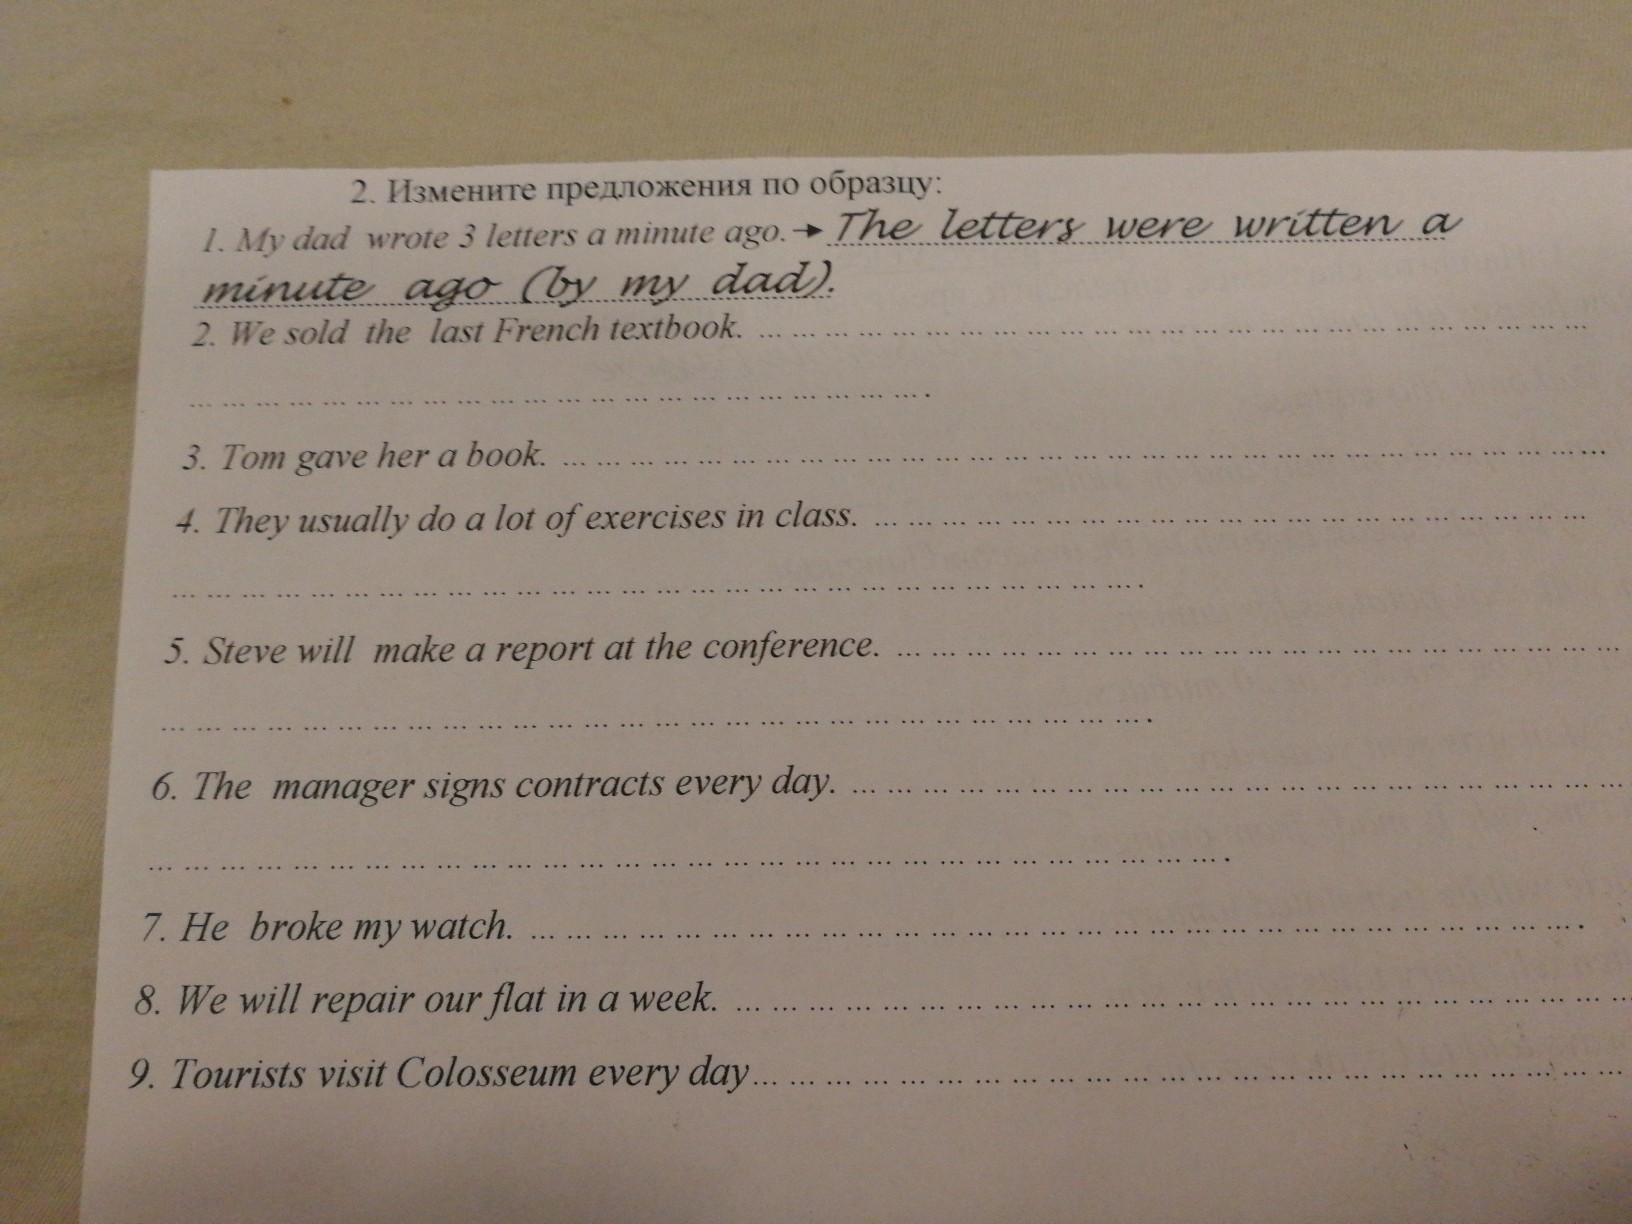 2. Измените предложения по образцу:
1. My dad wrote 3 letters a minute ago.→ The letters were written a
minute ago (by my dad).
2. We sold the last French textbook. ... ... ... ... ... ... ... ... ... ... ... ... ... ... ... ... ... ... ... ... ... ... ... ... ...
... ... ... ... ... ... ... ... ... ... ... ... ... ... ... ... ... ... ... ... ... ... .
3. Tom gave her a book. ... ... ... ... ... ... ... ... ... ... ... ... ... ... ... ... ... ... ... ... ... ... ... ... ... ... ... ... ... ... ....
4. They usually do a lot of exercises in class. ... ... ... ... ... ... ... ... ... ... ... ... ... ... ... ... ... ... ... ... ...
... ... ... ... ... ... ... ... ... ... ... ... ... ... ... ... ... ... ... ... ... ... ... ... ... ... ... ... .
5. Steve will make a report at the conference. ... ... ... ... ... ... ... ... ... ... ... ... ... ... ... ... ... ... ... ... ...
... ... ... ... ... ... ... ... ... ... ... ... ... ... ... ... ... ... ... ... ... ... ... ... ... ... ... ... .
6. The manager signs contracts every day. ... ... ... ... ... ... ... ... ... ... ... ... ... ... ... ... ... ... ... ... ... ...
... ... ... ... ... ... ... ... ... ... ... ... ... ... ... ... ... ... ... ... ... ... ... ... ... ... ... ... ... ... .
7. He broke my watch. ... ... ... ... ... ... ... ... ... ... ... ... ... ... ... ... ... ... ... ... ... ... ... ... ... ... ... ... ... .
8. We will repair our flat in a week. ... ... ... ... ... ... ... ... ... ... ... ... ... ... ... ... ... ... ... ... ... ... ... ... ...
9. Tourists visit Colosseum every day... ... ... ... ... ... ... ... ... ... ... ... ... ... ... ... ... ... ... ... ... ... ... ...